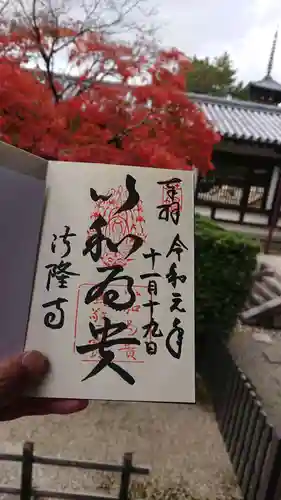 奉拝
令和元年
十一月十九日
以和為貴
法隆寺